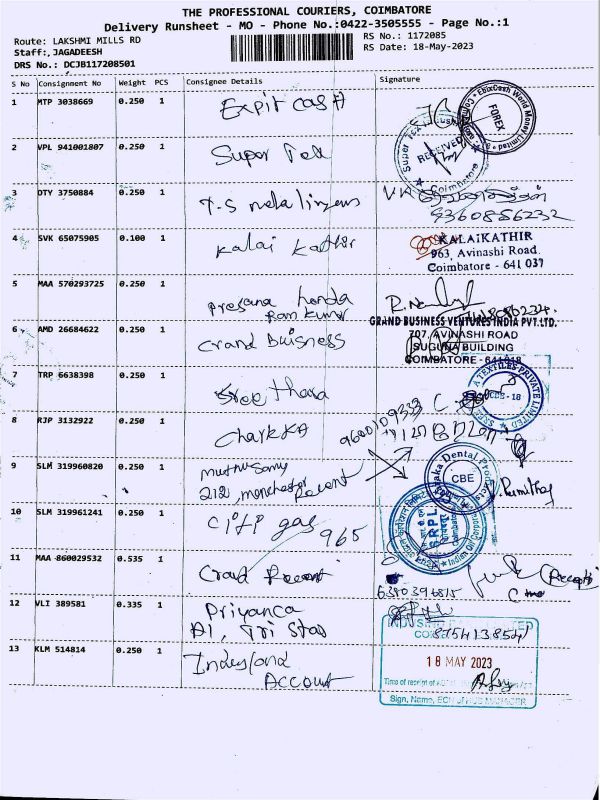 THE PROFESSIONAL COURIERS, COIMBATORE
Delivery Runsheet - MO - Phone No.:0422-3505555 - Page No.:1
Route: LAKSHMI MILLS RD
RS No.: 1172085
Staff:,JAGADEESH
RS Date: 18-May-2023
DRS No.: DCJB117208501
S No Consignment No Weight PCS Consignee Details Signature
1 MTP 3038669 0.250 1 Expit cash
EbixCash World Money Limited FOREX
2 VPL 941001807 0.250 1 Super Tex
Super Tex RECEIVED Coimbatore
3 DTY 3750884 0.250 1 T-S
9360856232
4 SVK 65075905 0.100 1 Kalai Kathir
KALAIKATHIR
963, Avinashi Road.
Coimbatore - 641 037
5 MAA 570293725 0.250 1 Presana honda
Ram Kumar
6 AMD 26684622 0.250 1 Grand Buisness
GRAND BUSINESS VENTURES INDIA PVT.LTD.
707, AVINASHI ROAD
SUGUNA BUILDING
COIMBATORE - 641018
7 TRP 6638398 0.250 1 Sree thara
TEXTILES PRIVATE LIMITED
CBE - 18
8 RJP 3132922 0.250 1 CharkKA
9 SLM 319960820 0.250 1 Muthusamy
212, manchester Recent
Dental Products
CBE
10 SLM 319961241 0.250 1 gas
965
SRPL
Indian Oil
11 MAA 860029532 0.535 1 Recent
12 VLI 389581 0.335 1 Priyanca
A1, Tri Star
8754138541
13 KLM 514814 0.250 1
Account
18 MAY 2023
Time of receipt of
Sign, Name, ECN of HUB MANAGER